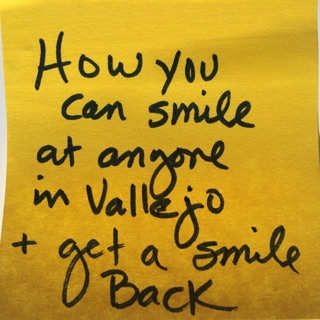 How you
can smile
at anyone
in Vallejo
+ get a smile
Back